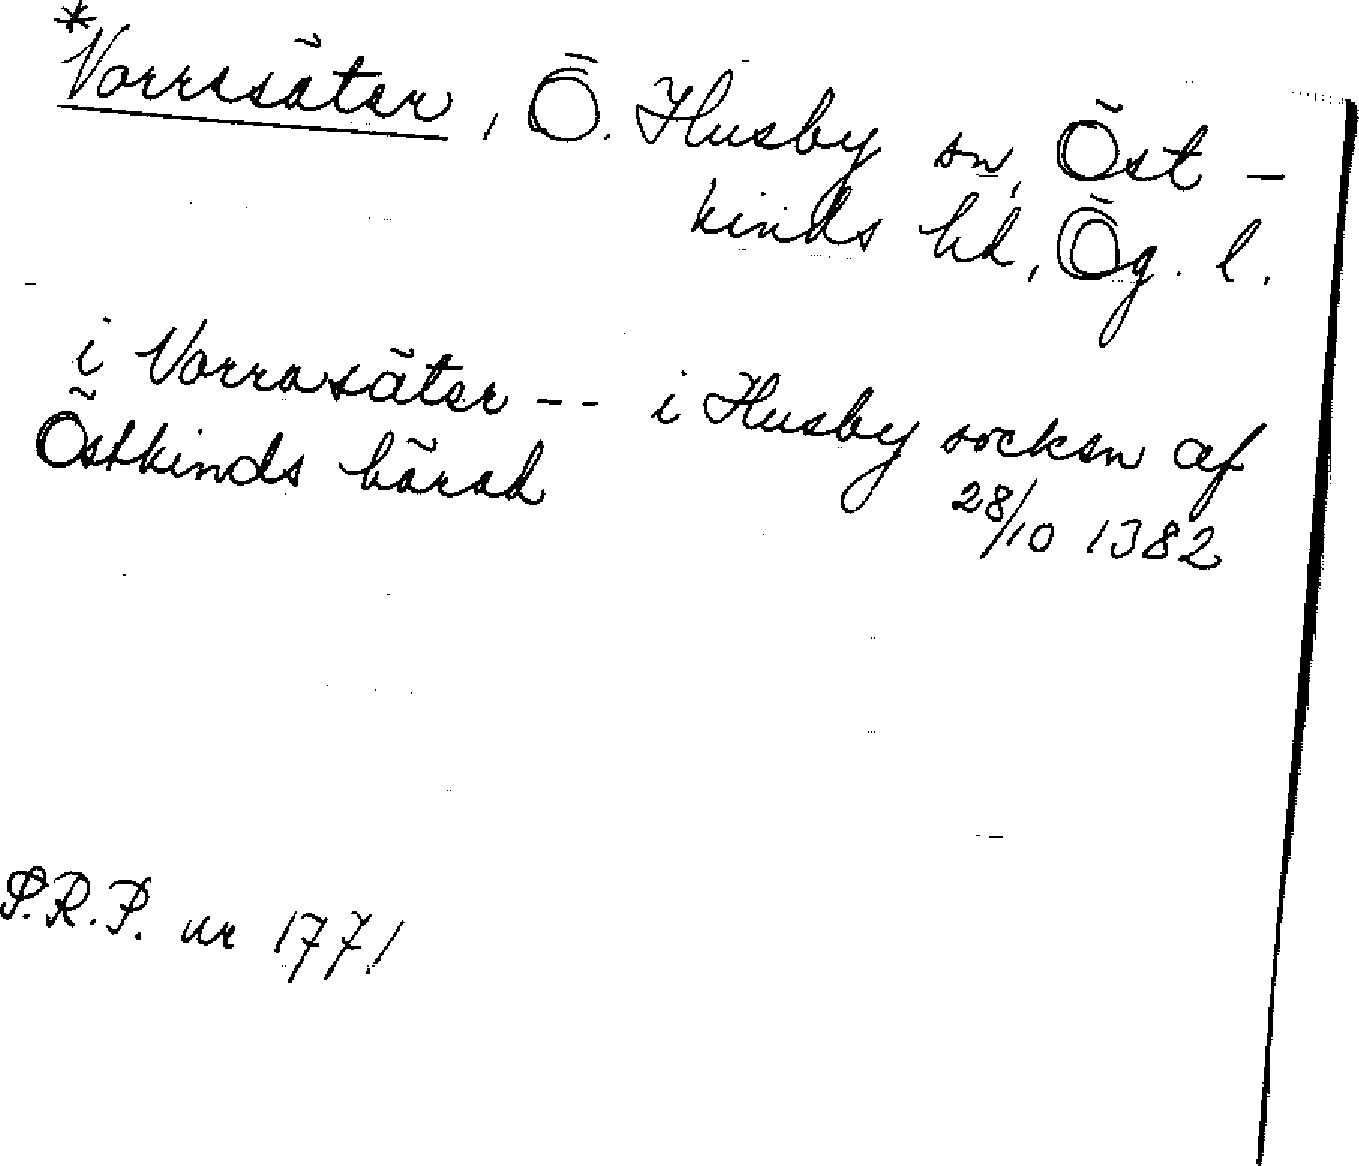 *Vorresäter, Ö. Husby sn, Öst-
kinds hd, Ög. l.
i Vorrasäter -- i Husby socken af
Östkinds härad
28/10 1382
S.R.P. nr 1771